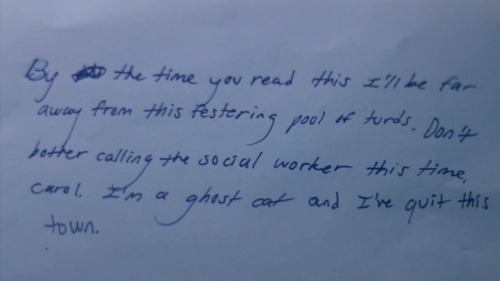 By the time you read this I'll be far
away from this festering pool of turds. Don't
botter calling the social worker this time,
Carol. I'm a ghost cat and I've quit this
town.